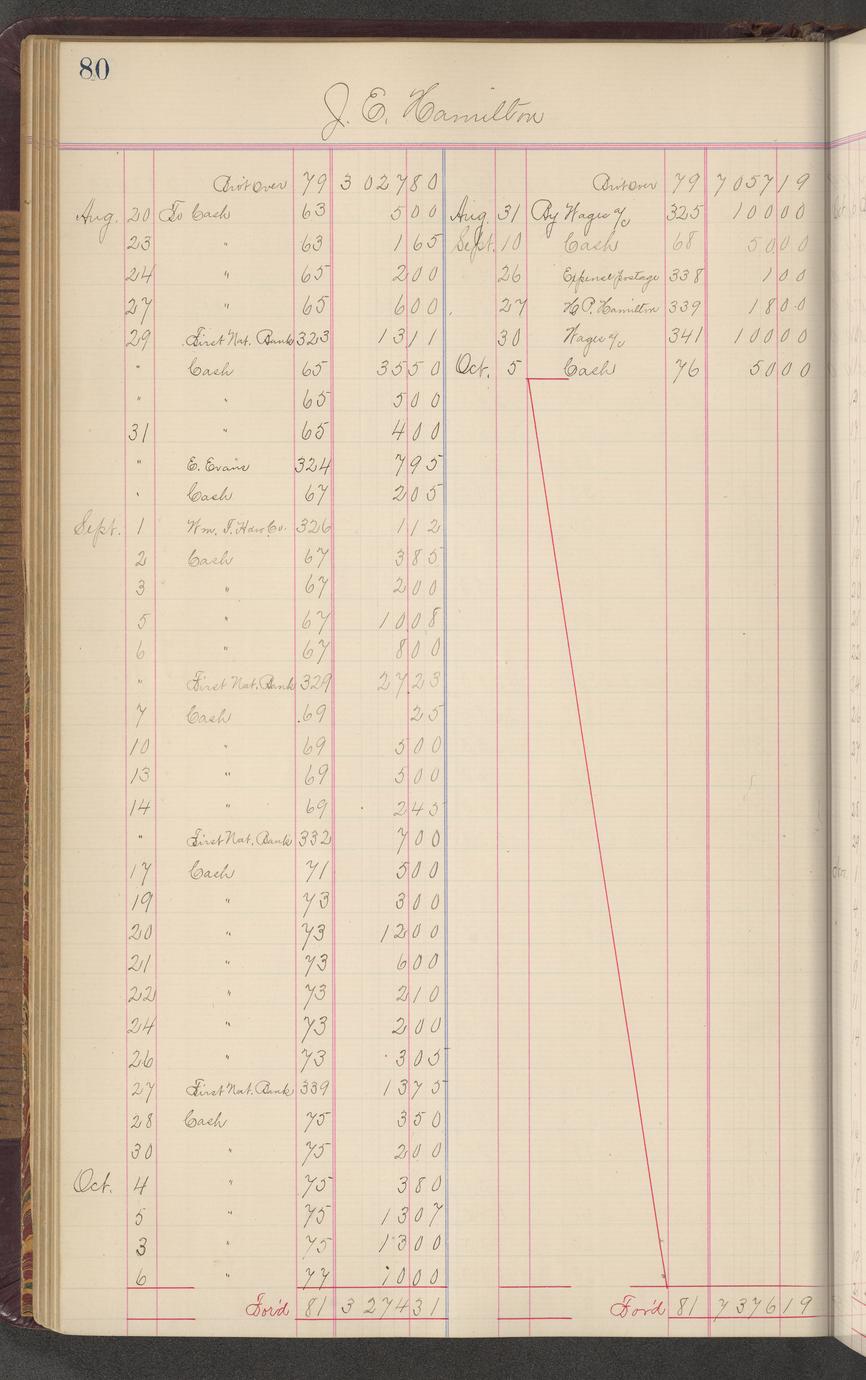 80
J. E. Hamilton
Bro't over 79 3 027 80
Aug. 20 To Cash 63 5 00
23 " 63 1 65
24 " 65 2 00
27 " 65 6 00
29 First Nat. Bank 323 13 11
" Cash 65 35 50
" " 65 5 00
31 " 65 4 00
" E. Evans 324 7 95
" Cash 67 2 05
Sept. 1 Wm. T. Co. 326 1 12
2 Cash 67 3 85
3 " 67 2 00
5 " 67 10 08
6 " 67 8 00
" First Nat. Bank 329 27 23
7 Cash 69 25
10 " 69 5 00
13 " 69 5 00
14 " 69 2 45
" First Nat. Bank 332 7 00
17 Cash 71 5 00
19 " 73 3 00
20 " 73 12 00
21 " 73 6 00
22 " 73 2 10
24 " 73 2 00
26 " 73 3 05
27 First Nat. Bank 339 13 75
28 Cash 75 3 50
30 " 75 2 00
Oct. 4 " 75 3 80
5 " 75 13 07
3 " 75 13 00
6 " 77 10 00
For'd 81 3 274 31
Bro't over 79 7 057 19
Aug. 31 By Wages a/c 325 100 00
Sept. 10 Cash 68 50 00
26 Expense postage 338 1 00
27 H. P. Hamilton 339 18 00
30 Wages a/c 341 100 00
Oct. 5 Cash 76 50 00
For'd 81 7 376 19